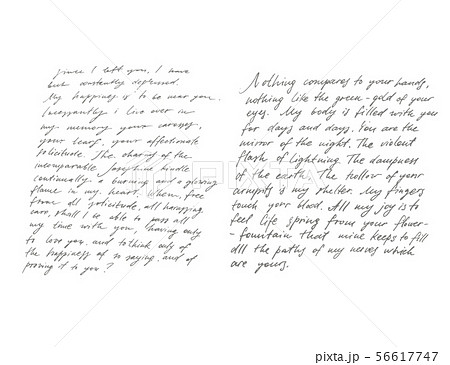 Since I left you, I have
been constantly depressed.
My happiness is to be near you.
Incessantly i live over in
my memory your caresses,
your tears, your affectionate
solicitude. The charms of the
incomparable Josephine kindle
continually a burning and a glowing
flame in my heart. When, free
from all solicitude, all harassing
care, shall I be able to pass all
my time with you, having only
to love you, and to think only of
the happiness of so saying, and of
proving it to you?
Nothing compares to your hands,
nothing like the green-gold of your
eyes. My body is filled with you
for days and days. You are the
mirror of the night. The violent
flash of lightning. The dampness
of the earth. The hollow of your
armpits is my shelter. My fingers
touch your blood. All my joy is to
feel life spring from your flower-
-fountain that mine keeps to fill
all the paths of my nerves which
are yours.
pixta.jp - 56617747